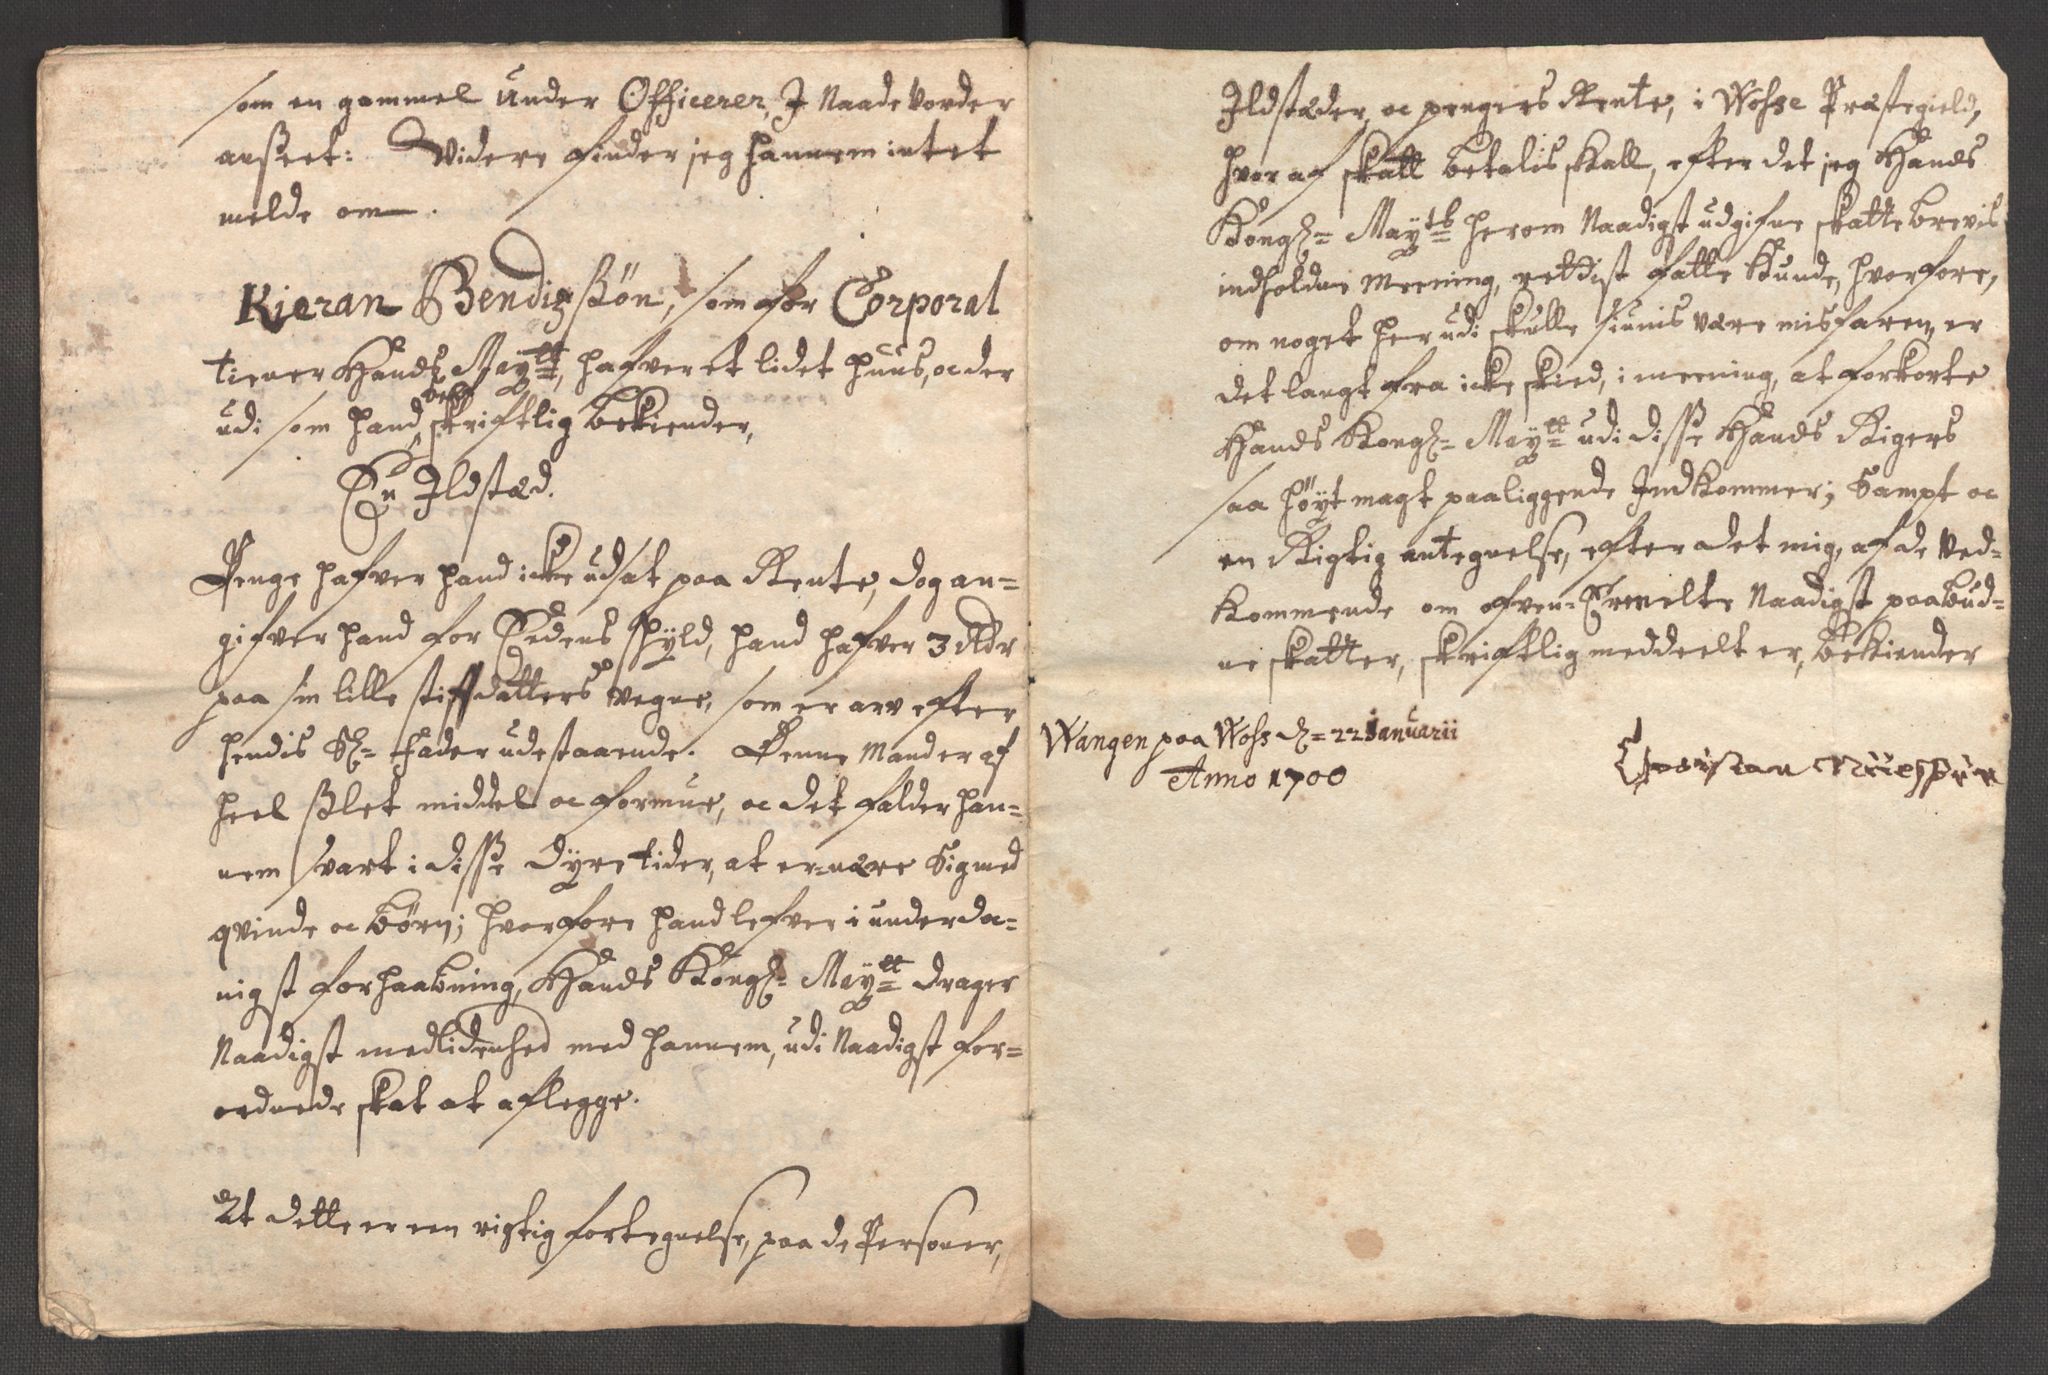 som en gammel Under Officerer, I Naade Vorder
anseet: Widere finder jeg hannem intet
melde om.
Kieran Bendixsøn, som for Corporal
tiener Hands Mayᵗᵗ, hafver et lidet huus, oc der
udi som hand self skriftlig bekiender,
En Ildstæd.
Penge hafver hand icke udsat paa Rente, dog an=
gifver hand for Eedens skyld, hand hafver 3 Rdr
paa sin lille stifdatters vegne, som er arv efter
hendis Sl= fader udestaaende. Denne Mand er af
heel sslet middel oc formue, oc det falder han=
nem svart i disse dyre tider, at er=nære Sig med
qvinde oc børn; hvorfore hand lefver i underda=
nigst forhaabning, Hands Kongl= Mayᵗᵗ drager
Naadigst medlidenhed med hannem, udi Naadigst for=
ordnede skat at aflegge.
At dette er een rigtig fortegnelse, paa de Personer,
Ildstæder, oc pengers Rente, i Wosse Præstegield,
hvor af skatt betalis skall, efter det jeg Hands
Kongl= Mayᵗˢ herom Naadigst udgifne skatte brevis
indholdne Meening, rettist fatte kunde, hvorfore,
om noget her udi skulle siunis være misfaren, er
det langt fra icke skied, i meening, at forkorte
Hands Kongl= Mayᵗᵗ udi disse Hands Rigers
saa høyt magt paaliggende Indkommer; Sampt oc
en Rigtig antegnelse, efter det mig, af de Ved=
kommende om ofven=Ermelte Naadigst paabud=
ne skatter, skriftlig meddeelt er, bekiender
Wangen paa Woss d= 22 Januarii
Anno 1700